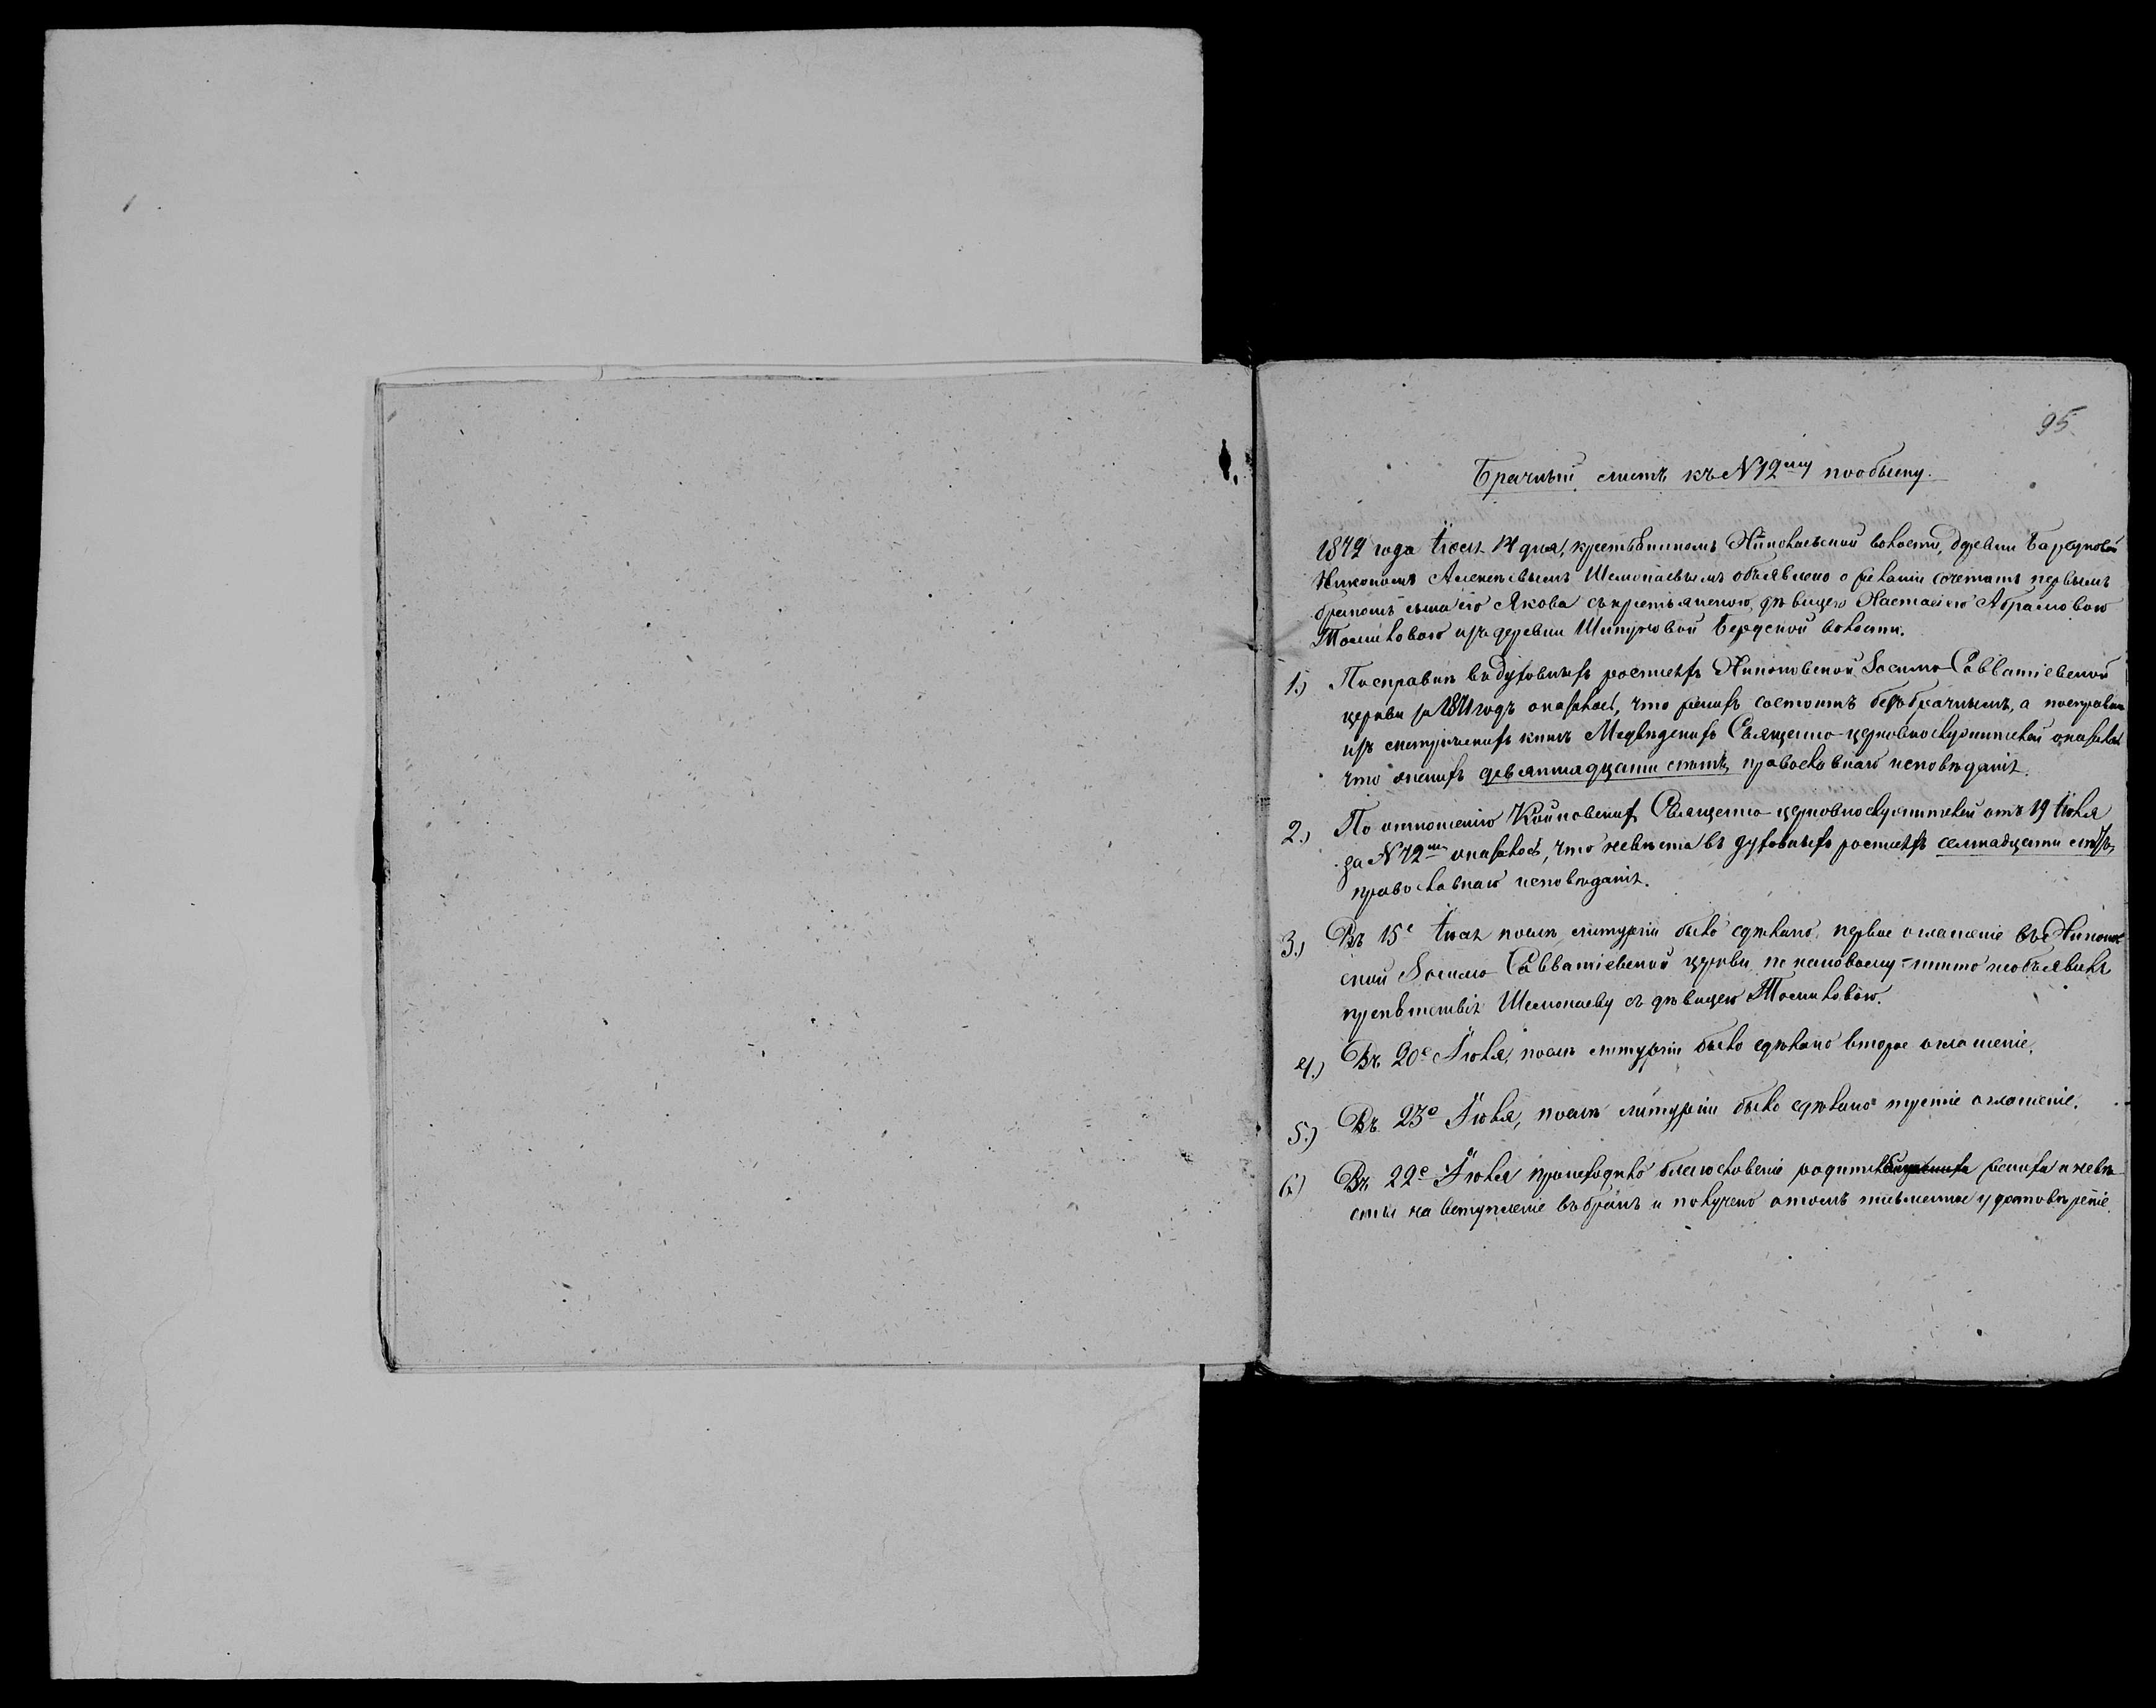 95
Брачный листъ къ N 12му пообыску.
1872 года Іюля 14 дня, крестьяниномъ Николаевской волости, деревни Барсуковой
Никономъ Алексѣевымъ Шемонаевымъ объявлено о желаніи сочетать первымъ
бракомъ сына его Якова съ крестьянскою дѣвицею Настасіею Абрамовою
Томиловою изъ деревни Шипуновой Бердской волости.
1.) По справкѣ въ духовныхъ росписяхъ Зосимо-Савватіевской
церкви за 1871 годъ оказалось, что женихъ состоитъ безбрачнымъ, а по справкѣ
изъ метрическихъ книгъ Медвѣдскихъ Священно-церковнослужителей оказалось
что онъ женихъ девятнадцати лѣтъ, православнаго исповѣданія.
2.) По отношенію Койновскихъ Священно-церковнослужителей отъ 19 Іюля
за N 72мъ оказалось, что невѣста въ духовныхъ росписяхъ семнадцати лѣтъ,
православнаго исповѣданія.
3.) Въ 15е Іюля послѣ литургіи было сдѣлано первое оглашеніе въ
ской Зосимо-Савватіевской церкви, по которому никто не объявилъ
препятствія Шемонаеву съ дѣвицею Томиловою.
4.) Въ 20е Іюля, послѣ литургіи было сдѣлано второе оглашеніе.
5.) Въ 23е Іюля, послѣ литургіи было сдѣлано третіе оглашеніе.
6.) Въ 22е Іюля происходило благословеніе жениха и невѣ-
сты на вступленіе въ бракъ и получено о томъ письменное удостовѣреніе.